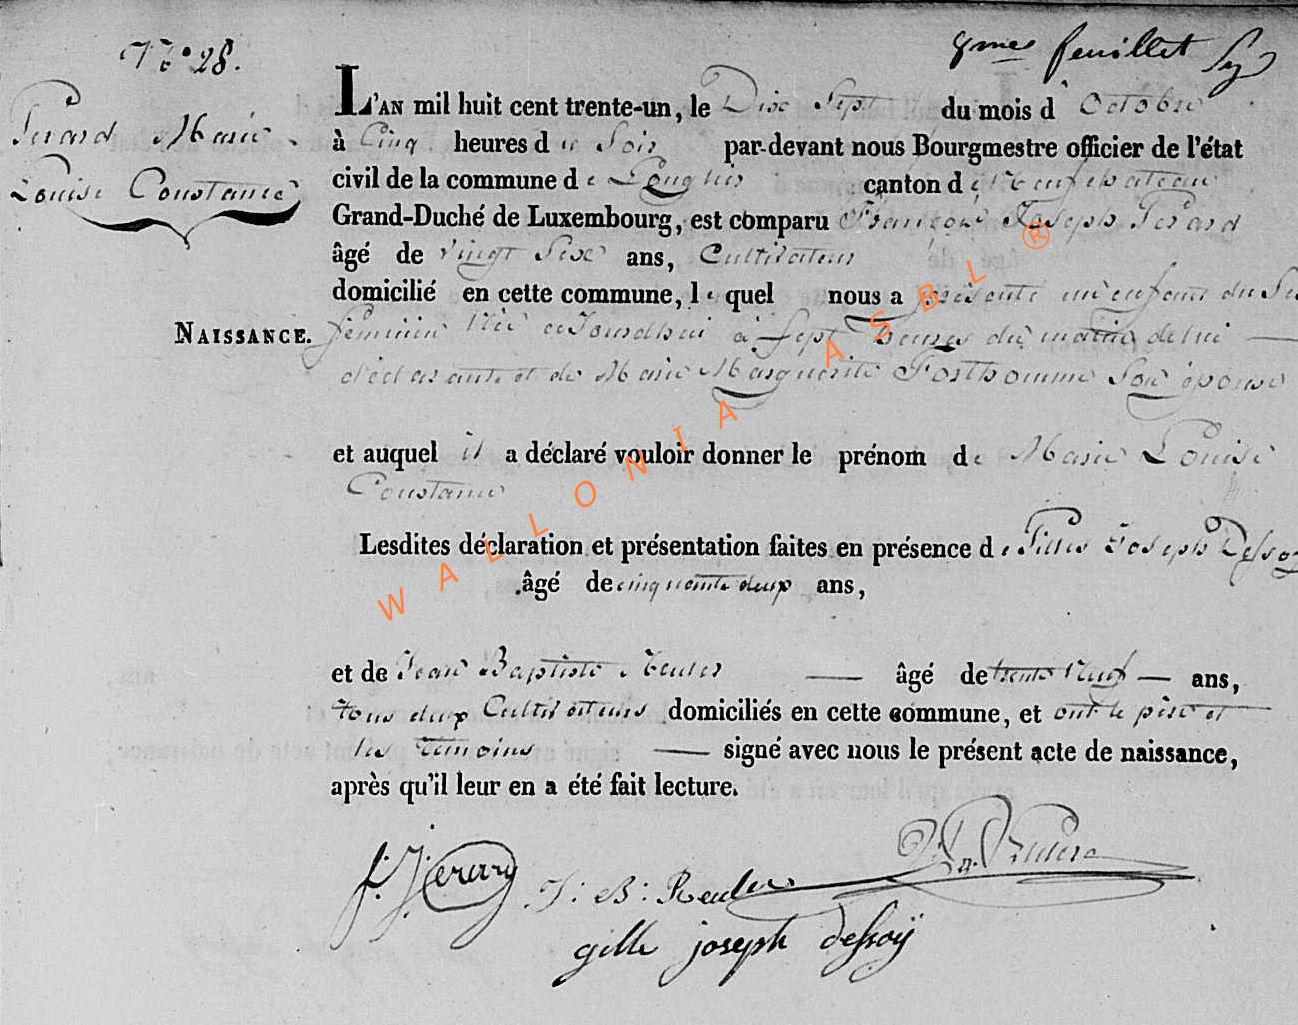 N°. 28.
9me feuillet
Perard Marie
Louise Constance
L'AN mil huit cent trente-un, le Dix Sept du mois d'Octobre
à Cinq heures du Soir par-devant nous Bourgmestre officier de l'état
civil de la commune de Longlier canton de Neufchateau
Grand-Duché de Luxembourg, est comparu François Joseph Perard
âgé de vingt Six ans, Cultivateur
domicilié en cette commune, lequel nous a présenté un enfant du
NAISSANCE.
feminin née aujourdhui à Sept heures du matin de lui
déclarant et de Marie Marguerite Posthomme Son épouse
et auquel il a déclaré vouloir donner le prénom de Marie Louise
Constance
Lesdites déclaration et présentation faites en présence de Gilles Joseph Dessoy
âgé de cinquante deux ans,
et de Jean Baptiste Reuler — âgé de trente Neuf — ans,
tous deux Cultivateurs domiciliés en cette commune, et ont le père et
les témoins — signé avec nous le présent acte de naissance,
après qu'il leur en a été fait lecture.
J: B: Reuler
gille joseph dessoÿ
WALLONIA ASBL ®